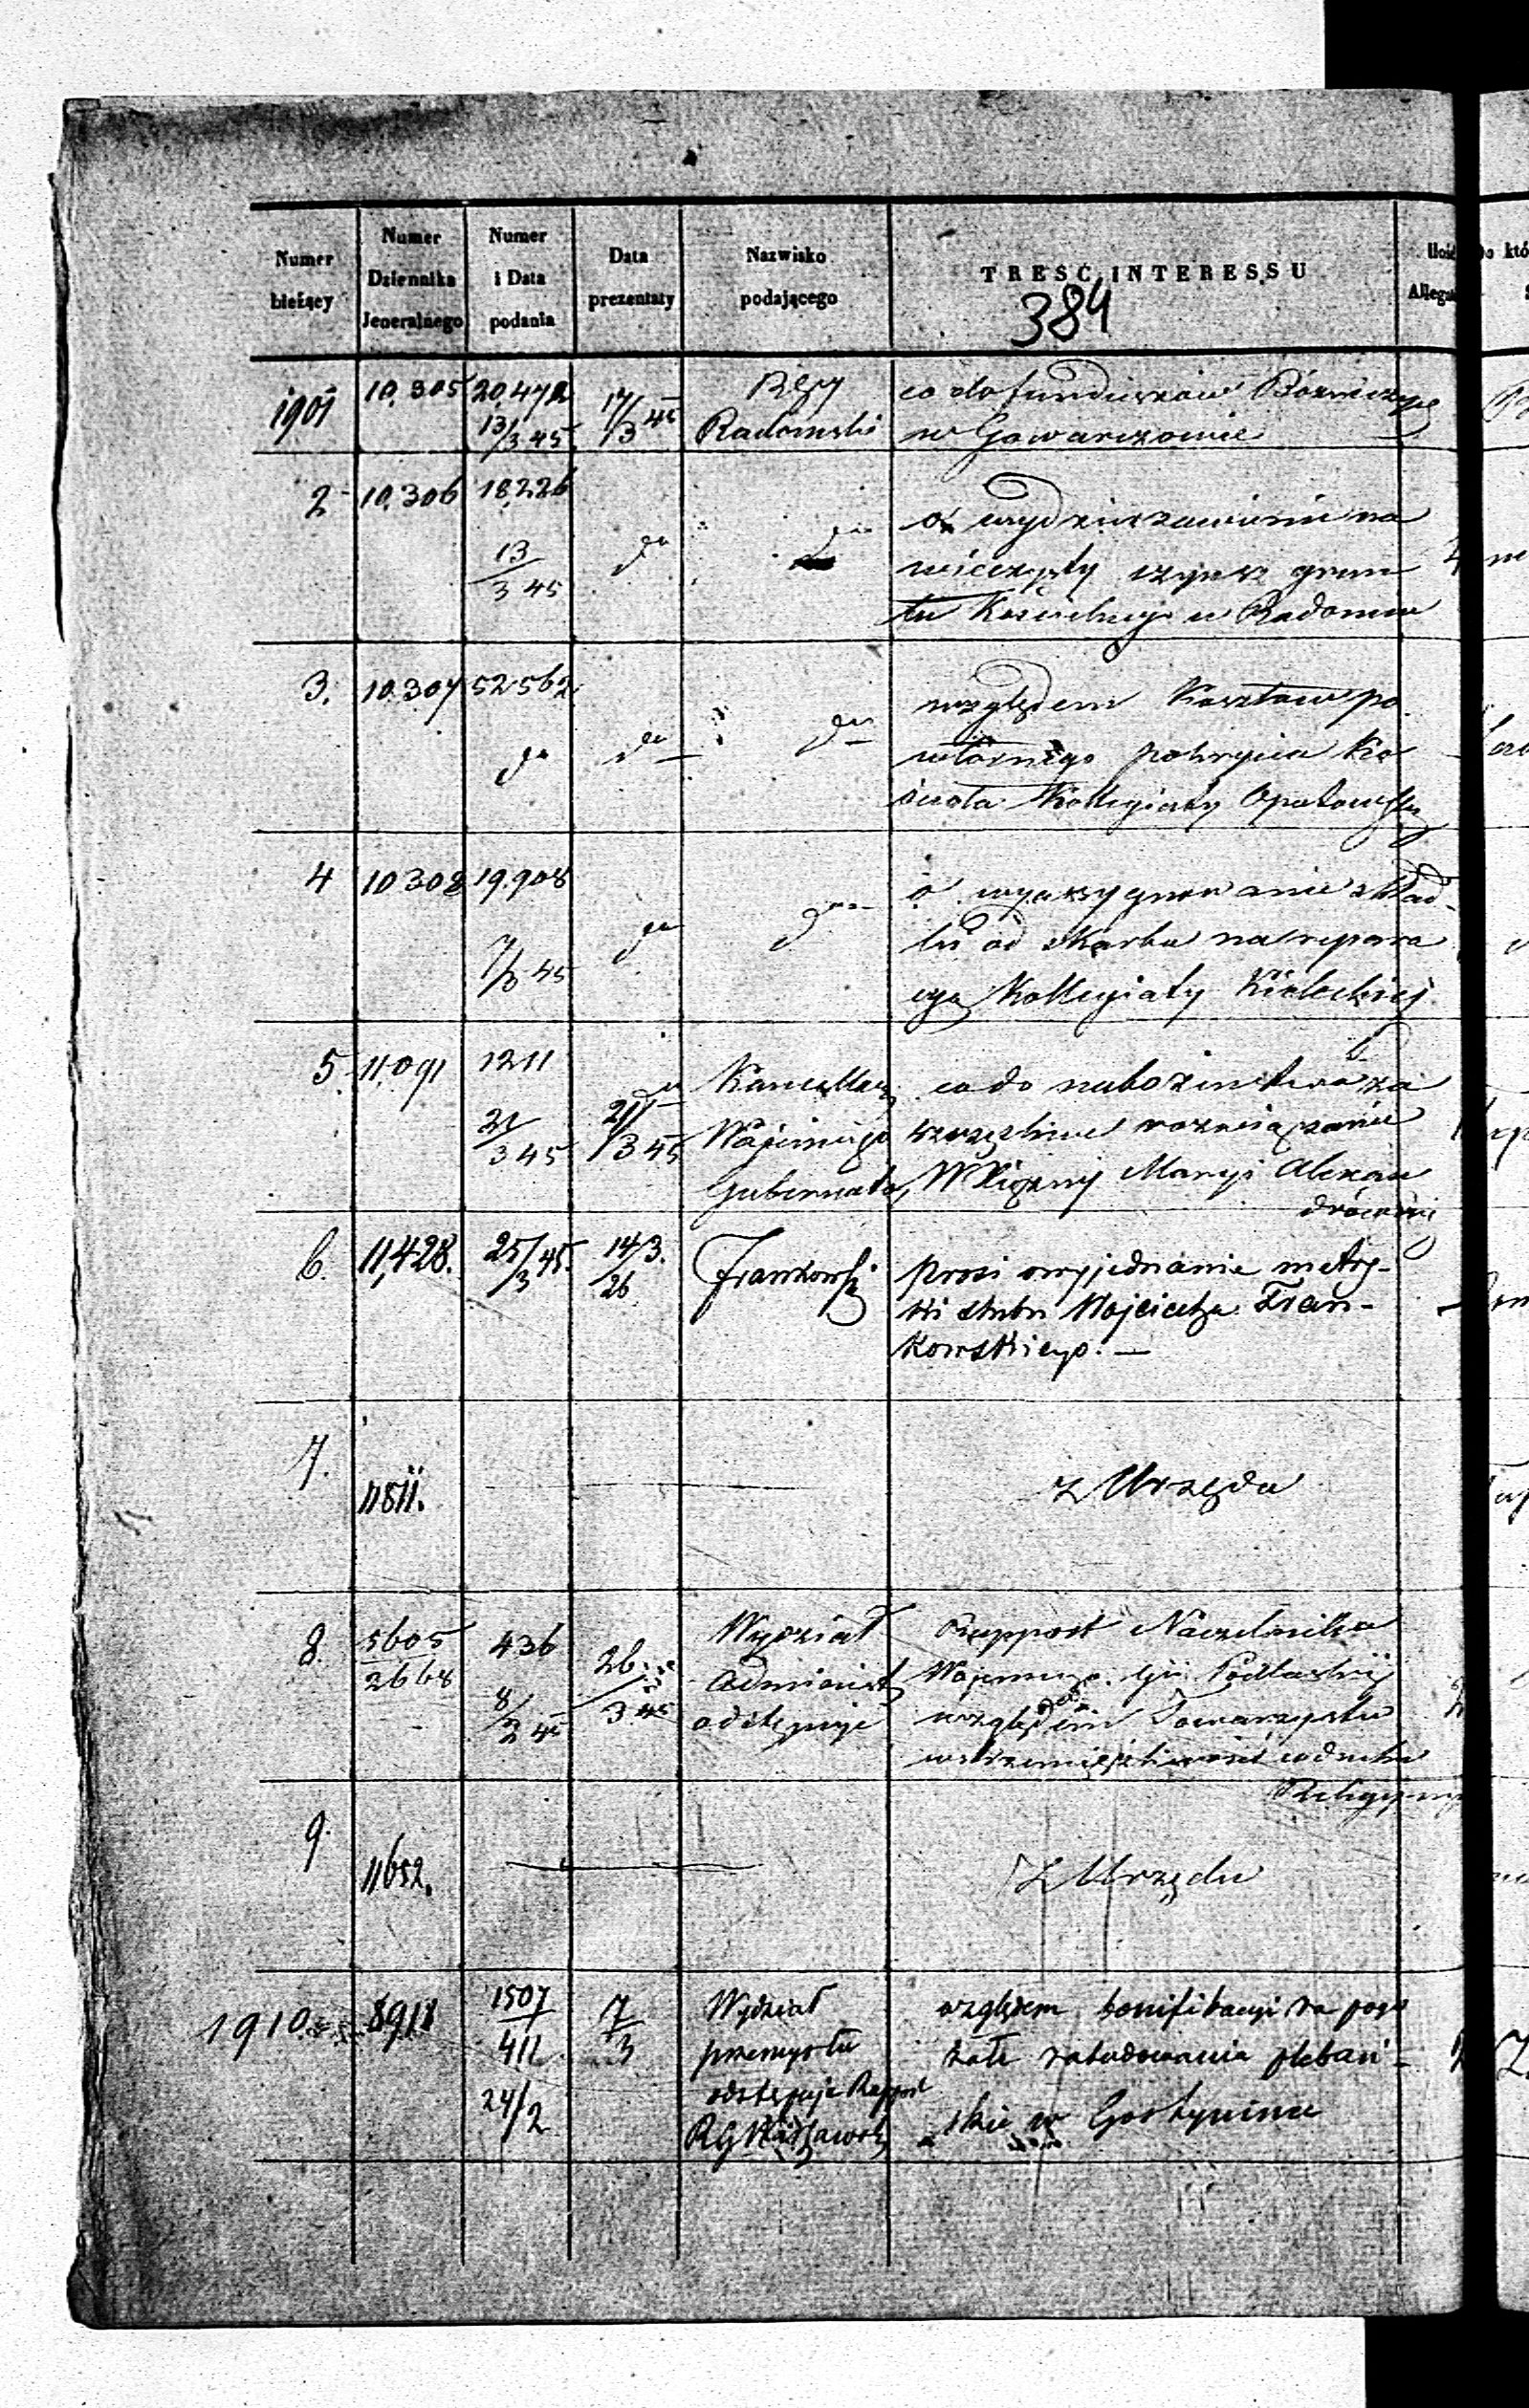 Numer bieżący | Numer Dziennika Jeneralnego | Numer i Data podania | Data prezentaty | Nazwisko podającego | TREŚĆ INTERESSU
384
1901 | 10,305 | 20,472 13/3 45 | 17/3 45 | Rząd Radomski | co do funduszów Bóżniczych
w Gowarczowie
2 | 10,306 | 18,226 13/3 45 | do | do | o wydzierzawienie na
wieczysty czynsz grun
tu Kościelnego w Radomiu
3. | 10.307 | 52562 do | do | do | względem Kosztów po
wtórnego pokrycia Ko
ścioła Kollegiaty Opatowskiej
4 | 10308 | 19.908 7/3 45 | do | do | o wyassygnowanie składki
od skarbu na repara
cyą Kollegiaty Kieleckiej
5. | 11,091 | 1211 21/3 45 | 21/3 45 | Kancellarya Wojennego Gubernatora | co do nabożeństwa za
szczęśliwe rozwiązanie
W Xiężnej Maryi Alexan
drównej
6. | 11,428. | 25/3 45. | 14/3. 26 | Frankowski | prosi o wyjednanie metry-
ki ślubu Wojciecha Fran-
kowskiego. —
7. | 11811. | z Urzędu
8. | 5605 2668 | 436 8/2 45 | 26/3 45 | Wydział Administ. odstępuje | Rapport Naczelnika
Wojennego Gii Podlaskiej
względem Towarzystw
wstrzemięźliwości co ducha
Religijnego
9. | 11652. | Z Urzędu
1910. | 8918 | 1507 411 24/2 | 7/3 | Wydział przemysłu odstępuje Rapport RG Warszawsk | względem bonifikacyi za pogo
załe zabudowania plebań-
skie w Gostyninie